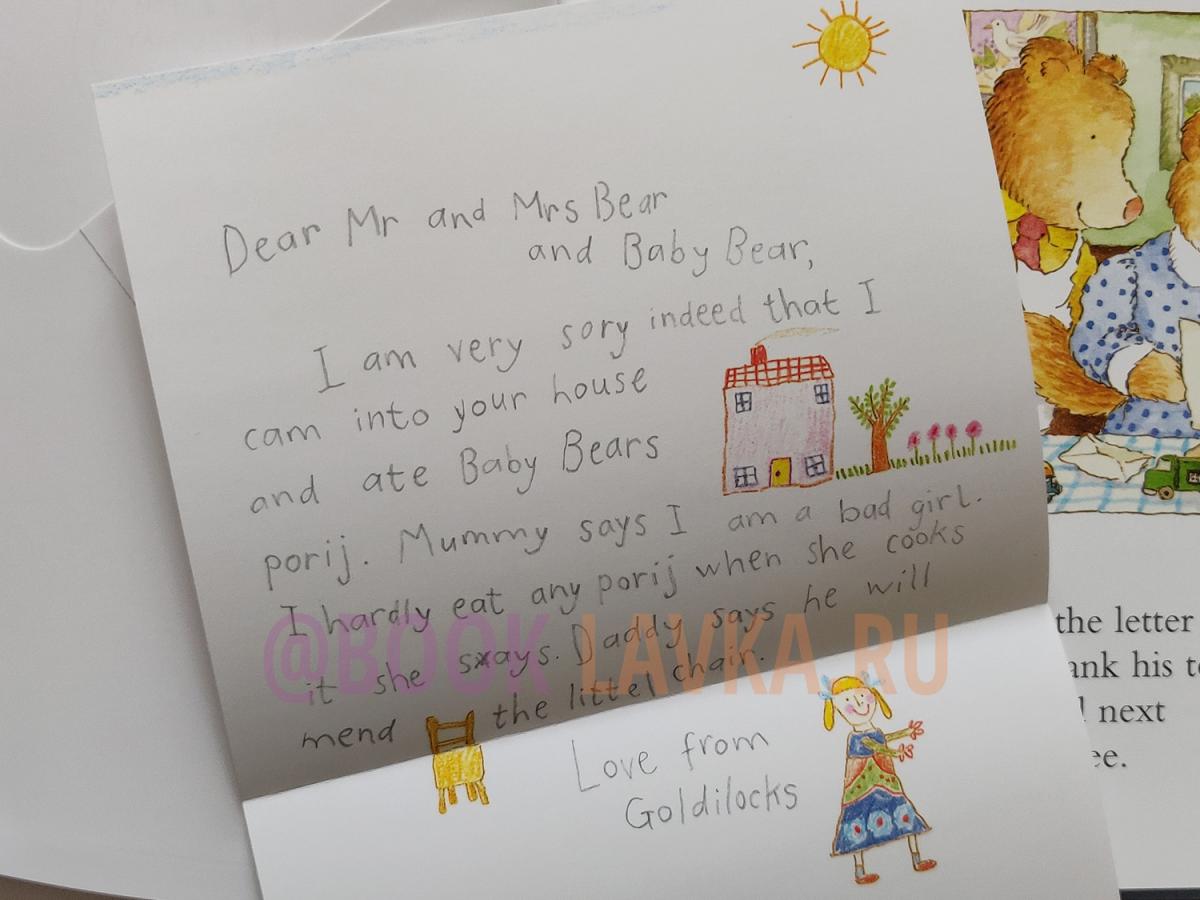 Dear Mr and Mrs Bear
and Baby Bear,
I am very sory indeed that I
cam into your house
and ate Baby Bears
porij. Mummy says I am a bad girl.
I hardly eat any porij when she cooks
it she sxays. Daddy says he will
mend the littel chair.
Love from
Goldilocks
@BOOK LAVKA.RU
the letter
ank his
next
ee.